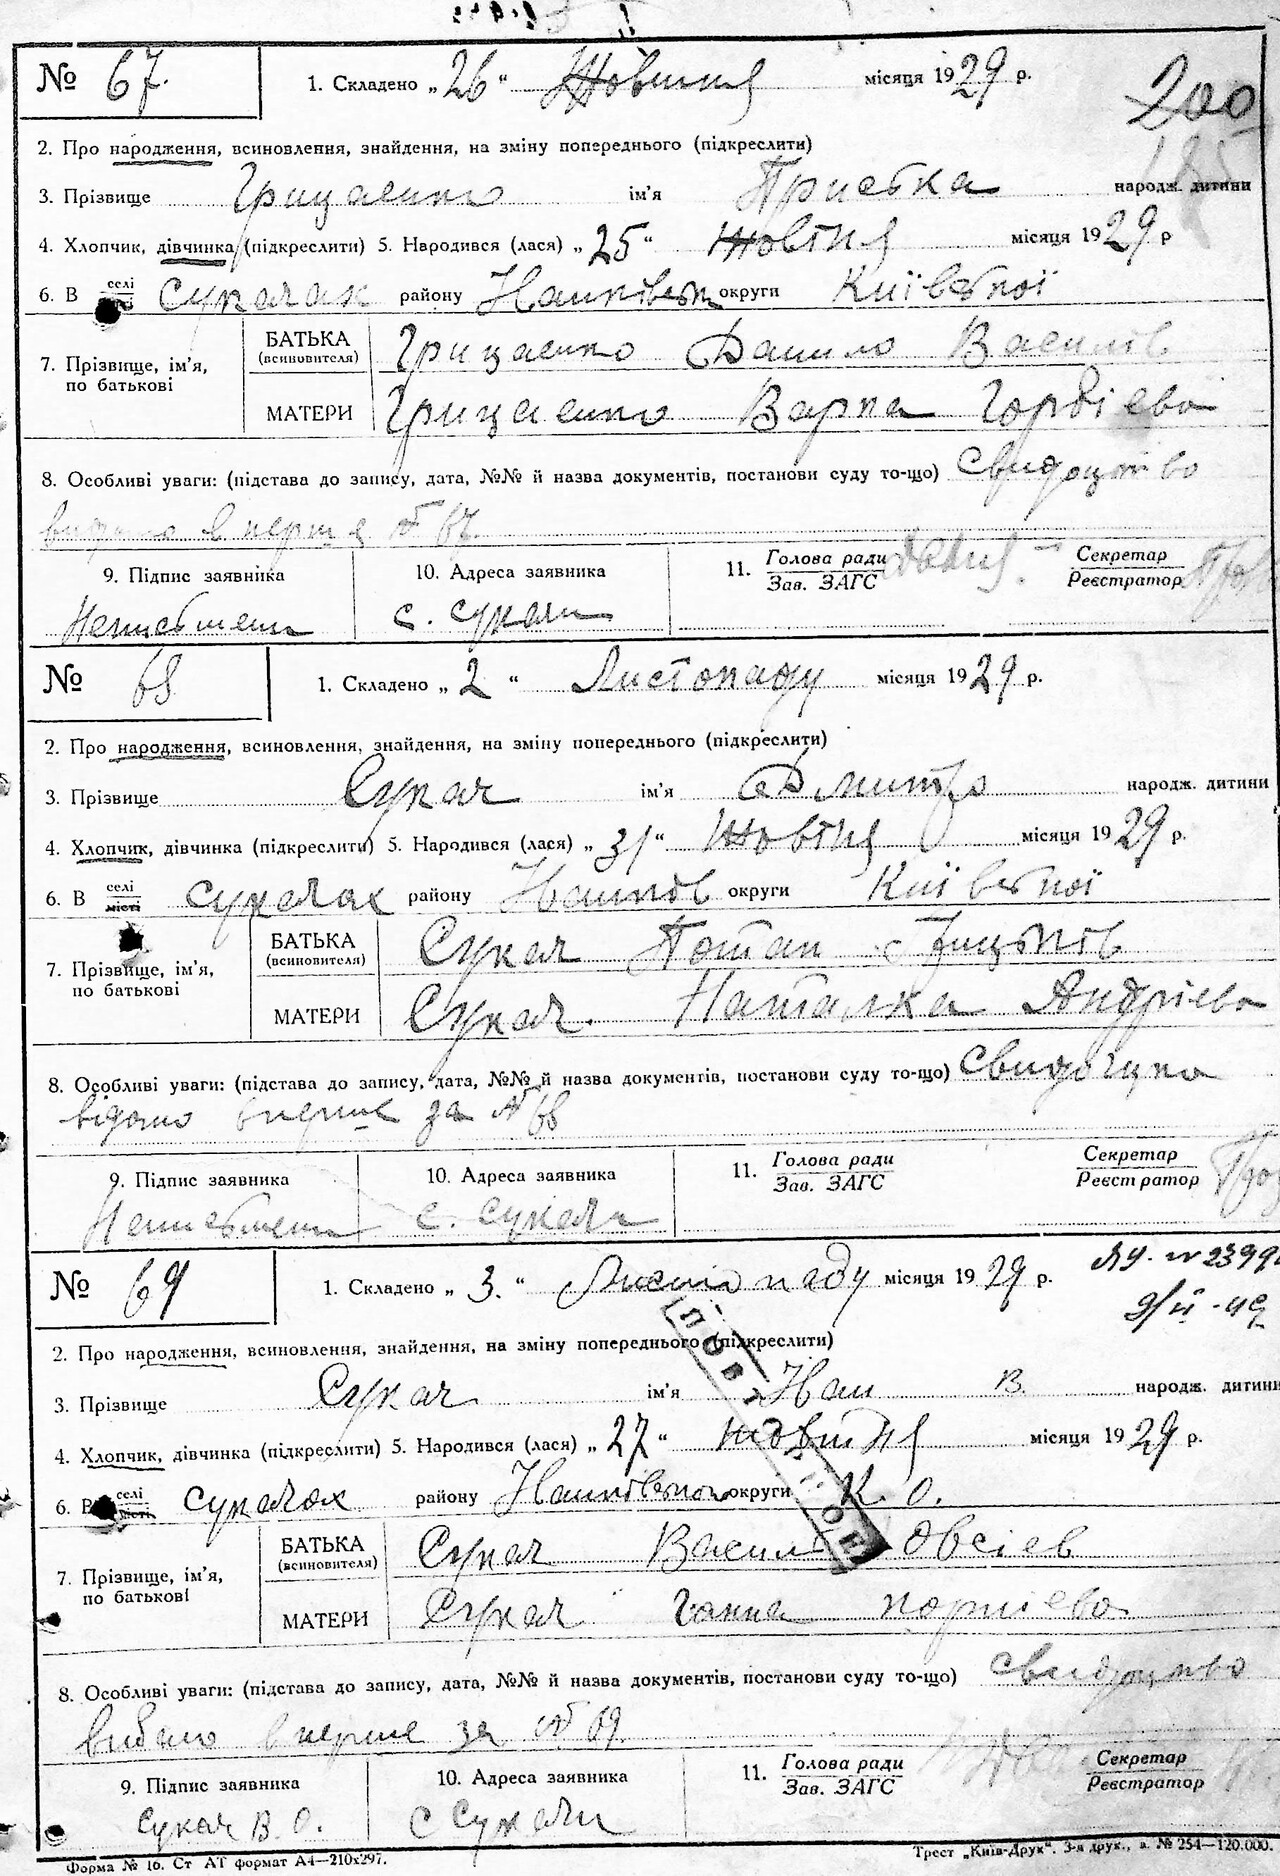 № 67. 1. Складено „26“ Жовтня місяця 1929 р.
200
2. Про народження, всиновлення, знайдення, на зміну попереднього (підкреслити)
3. Прізвище Грицаенко ім'я Приська народж. дитини
4. Хлопчик, дівчинка (підкреслити) 5. Народився (лася) „25“ Жовтня місяця 1929 р
6. В селі сукачах району округи Київської
7. Прізвище, ім'я, по батькові БАТЬКА (всиновителя) Грицаенко Данило Василів
МАТЕРИ Грицаенко Варка Гордієва
8. Особливі уваги: (підстава до запису, дата, №№ й назва документів, постанови суду то-що) свидоцтво
видано в перше № 67.
9. Підпис заявника 10. Адреса заявника 11. Голова ради Зав. ЗАГС Секретар Реєстратор
Неписьмени с. сукачи
№ 68 1. Складено „2“ Листопаду місяця 1929 р.
2. Про народження, всиновлення, знайдення, на зміну попереднього (підкреслити)
3. Прізвище Сукач ім'я Дмитро народж. дитини
4. Хлопчик, дівчинка (підкреслити) 5. Народився (лася) „31“ Жовтня місяця 1929 р.
6. В селі місті сукачах району округи Київської
7. Прізвище, ім'я, по батькові БАТЬКА (всиновителя) Сукач Потап Грицьків
МАТЕРИ Сукач. Наталка Андріева
8. Особливі уваги: (підстава до запису, дата, №№ й назва документів, постанови суду то-що)
видано вперше за № 68
9. Підпис заявника 10. Адреса заявника 11. Голова ради Зав. ЗАГС Секретар Реєстратор
Неписьмени с. сукачи
№ 69 1. Складено „3.“ Листопаду місяця 1929 р.
2. Про народження, всиновлення, знайдення, на зміну попереднього (підкреслити)
3. Прізвище Сукач ім'я Іван В. народж. дитини
ПОВТ
4. Хлопчик, дівчинка (підкреслити) 5. Народився (лася) „27“ Жовтня місяця 1929 р.
6. В селі місті сукачах району округи К. О.
7. Прізвище, ім'я, по батькові БАТЬКА (всиновителя) Сукач Василь Овсіев
МАТЕРИ Сукач Ганна корніева
8. Особливі уваги: (підстава до запису, дата, №№ й назва документів, постанови суду то-що) свидоцтво
видано вперше за № 69.
9. Підпис заявника 10. Адреса заявника 11. Голова ради Зав. ЗАГС Секретар Реєстратор
Сукач В. О. с Сукачи
Форма № 16. Ст АТ формат А4—210х297. Трест „Київ-Друк“. 3-я друк., в. № 254—120.000.